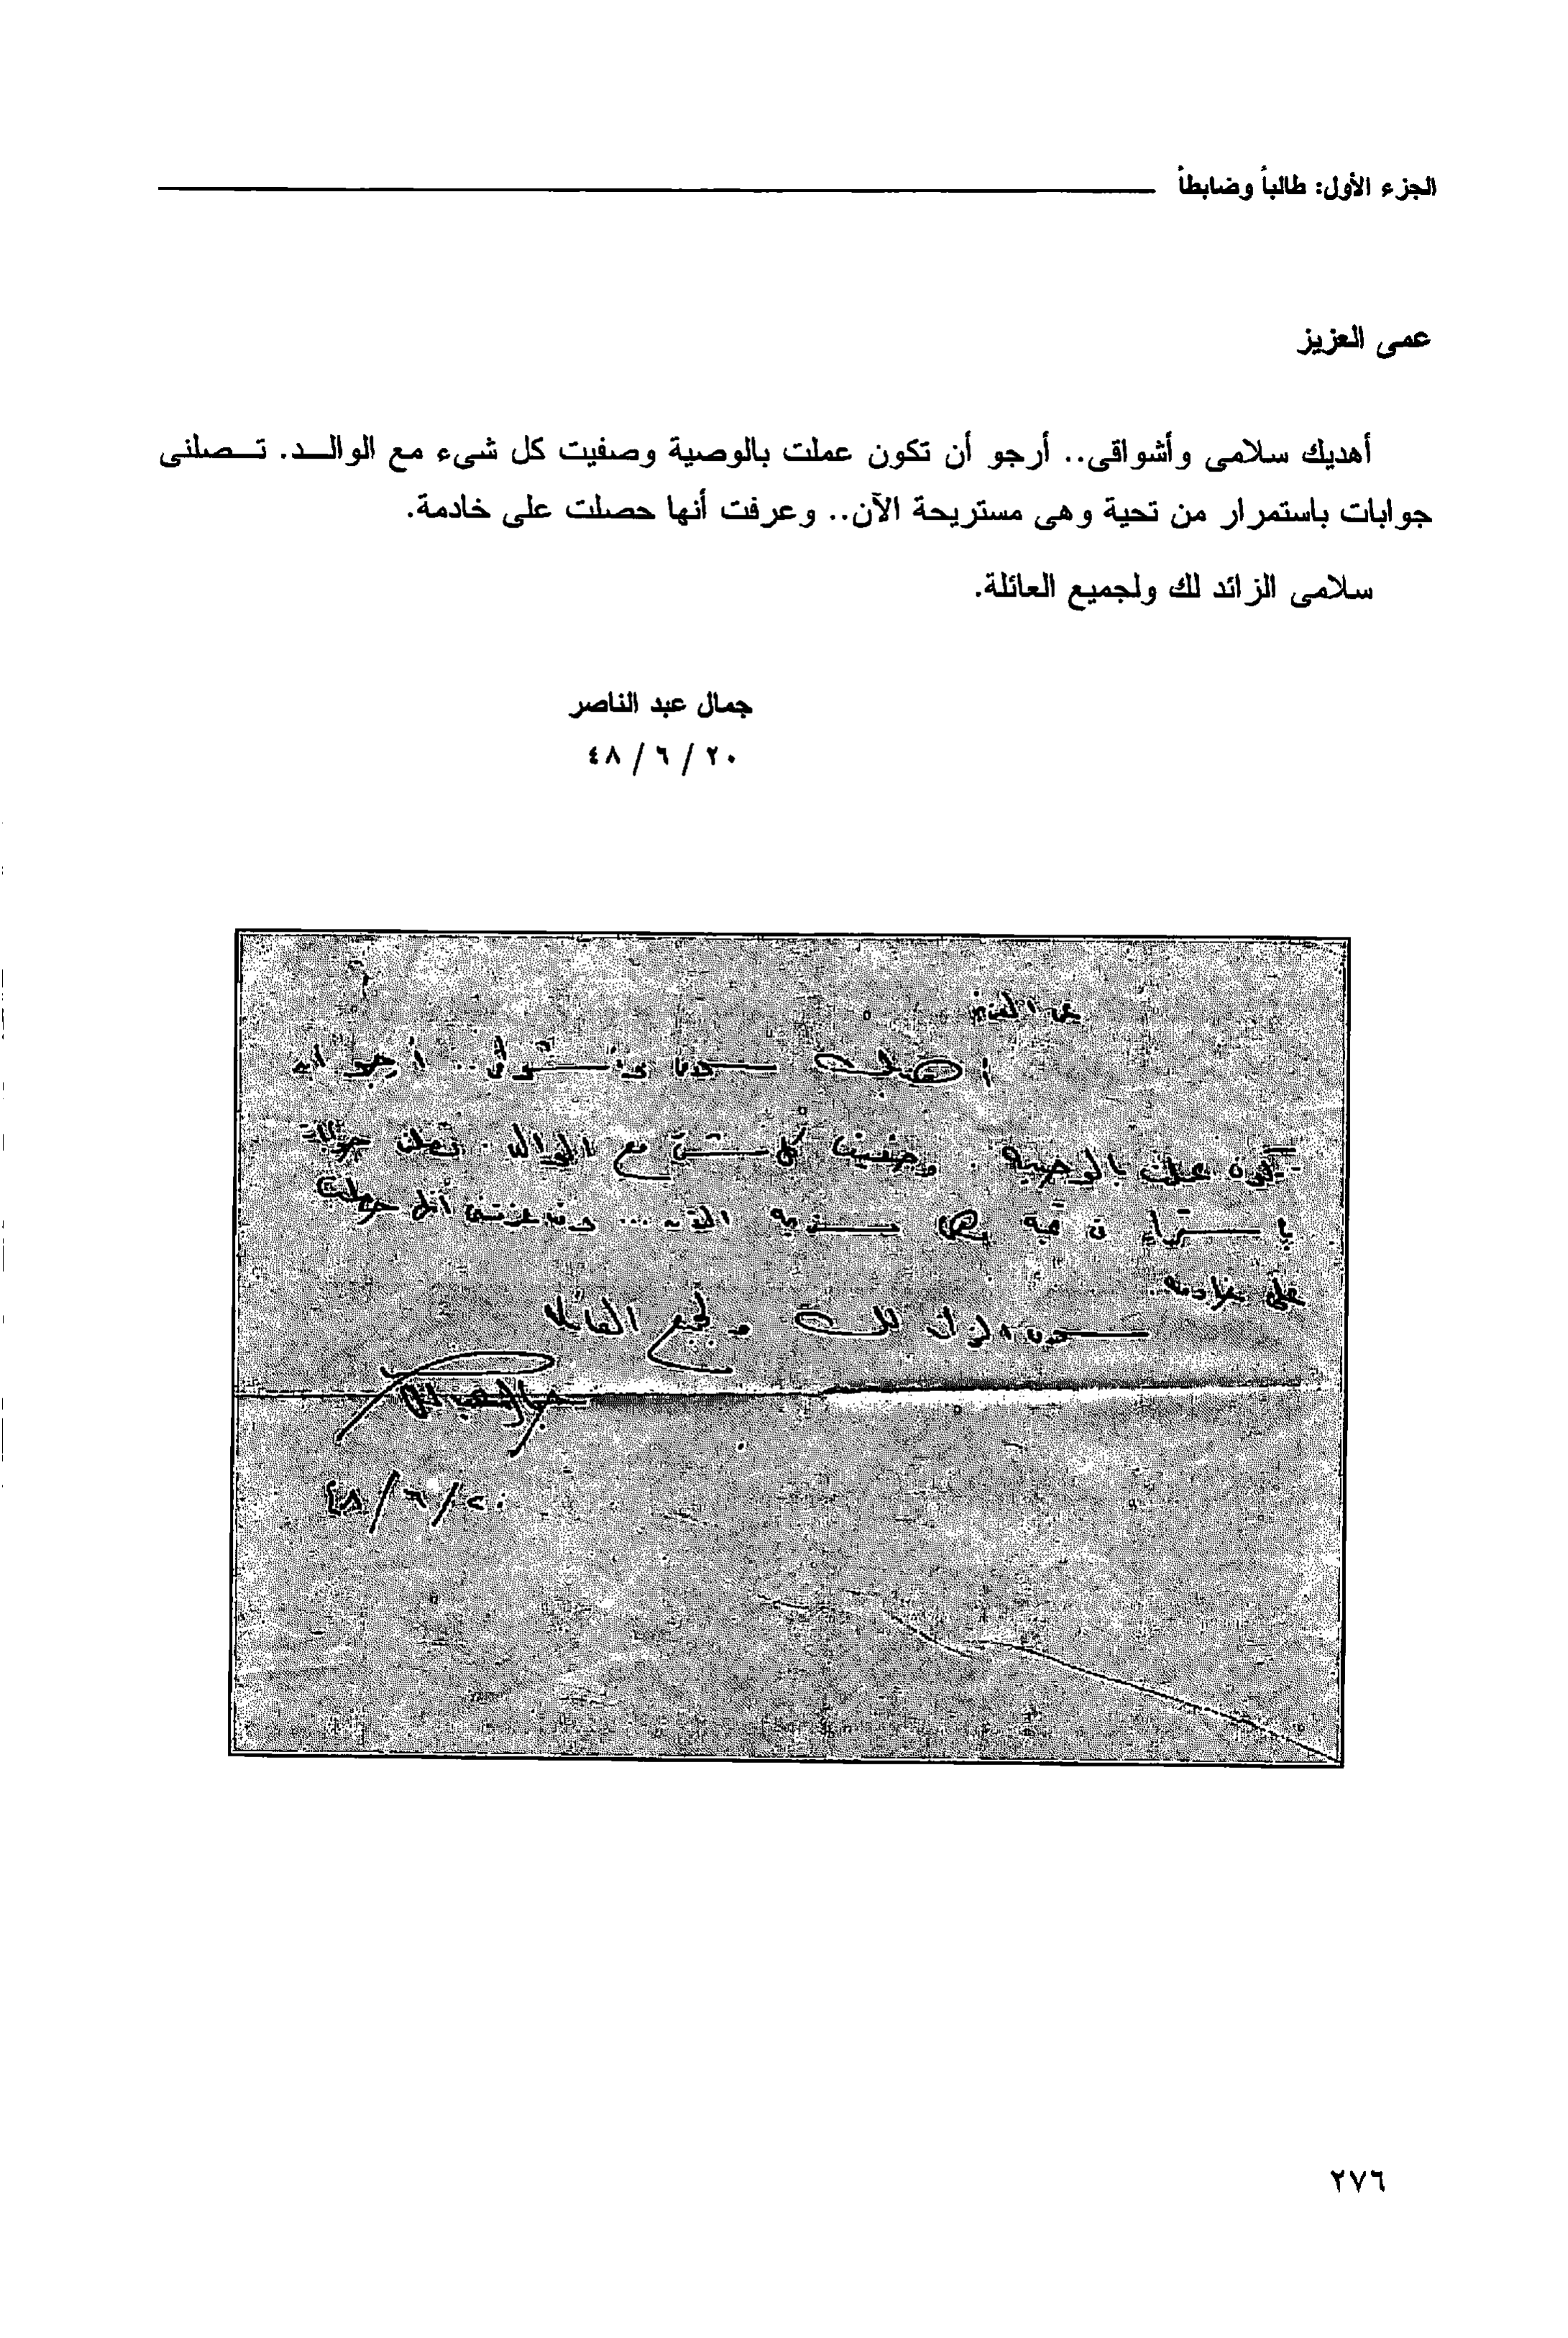 الجزء الأول: طالباً وضابطاً
عمى العزيز
أهديك سلامى وأشواقى.. أرجو أن تكون عملت بالوصية وصفيت كل شىء مع الوالد. تصلنى
جوابات باستمرار من تحية وهى مستريحة الآن.. وعرفت أنها حصلت على خادمة.
سلامى الزائد لك ولجميع العائلة.
جمال عبد الناصر
٢٠ / ٦ / ٤٨
عمى العزيز
أهديك سلامى وأشواقى .. أرجو أن
تكون عملت بالوصية . وصفيت كل شىء مع الوالد . تصلنى جوابات
باستمرار من تحية وهى مستريحة الآن ... أنها حصلت
على خادمة .
سلامى الزائد لك ولجميع العائلة
جمال عبد الناصر
٢٠/٦/٤٨
٢٧٦